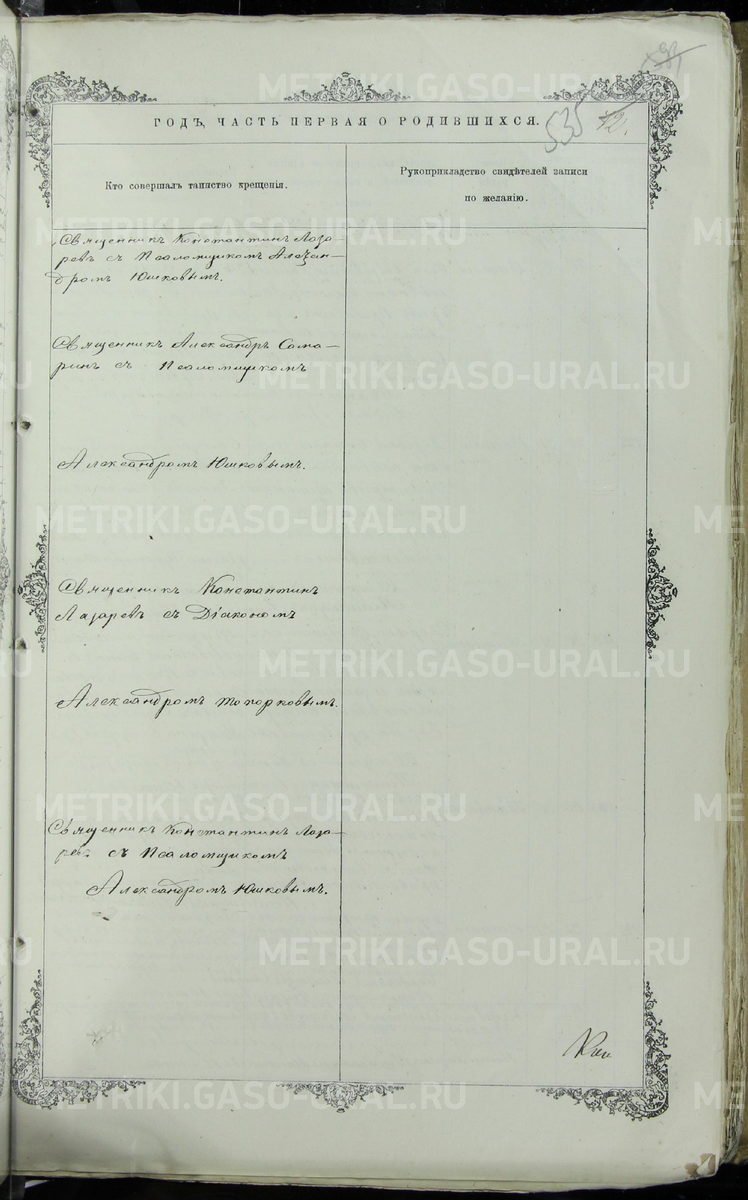 ГОДЪ, ЧАСТЬ ПЕРВАЯ О РОДИВШИХСЯ.
535
Кто совершалъ таинство крещенія.
Рукоприкладство свидѣтелей записи
по желанію.
Священникъ Константинъ Лаза-
ревъ съ Псаломщикомъ Алексан-
дромъ Юшковымъ.
Священникъ Александръ Сама-
ринъ съ Псаломщикомъ
Александромъ Юшковымъ.
Священникъ Константинъ
Лазаревъ съ Діакономъ
Александромъ Топорковымъ.
Священникъ Константинъ Лаза-
ревъ съ Псаломщикомъ
Александромъ Юшковымъ.
METRIKI.GASO-URAL.RU